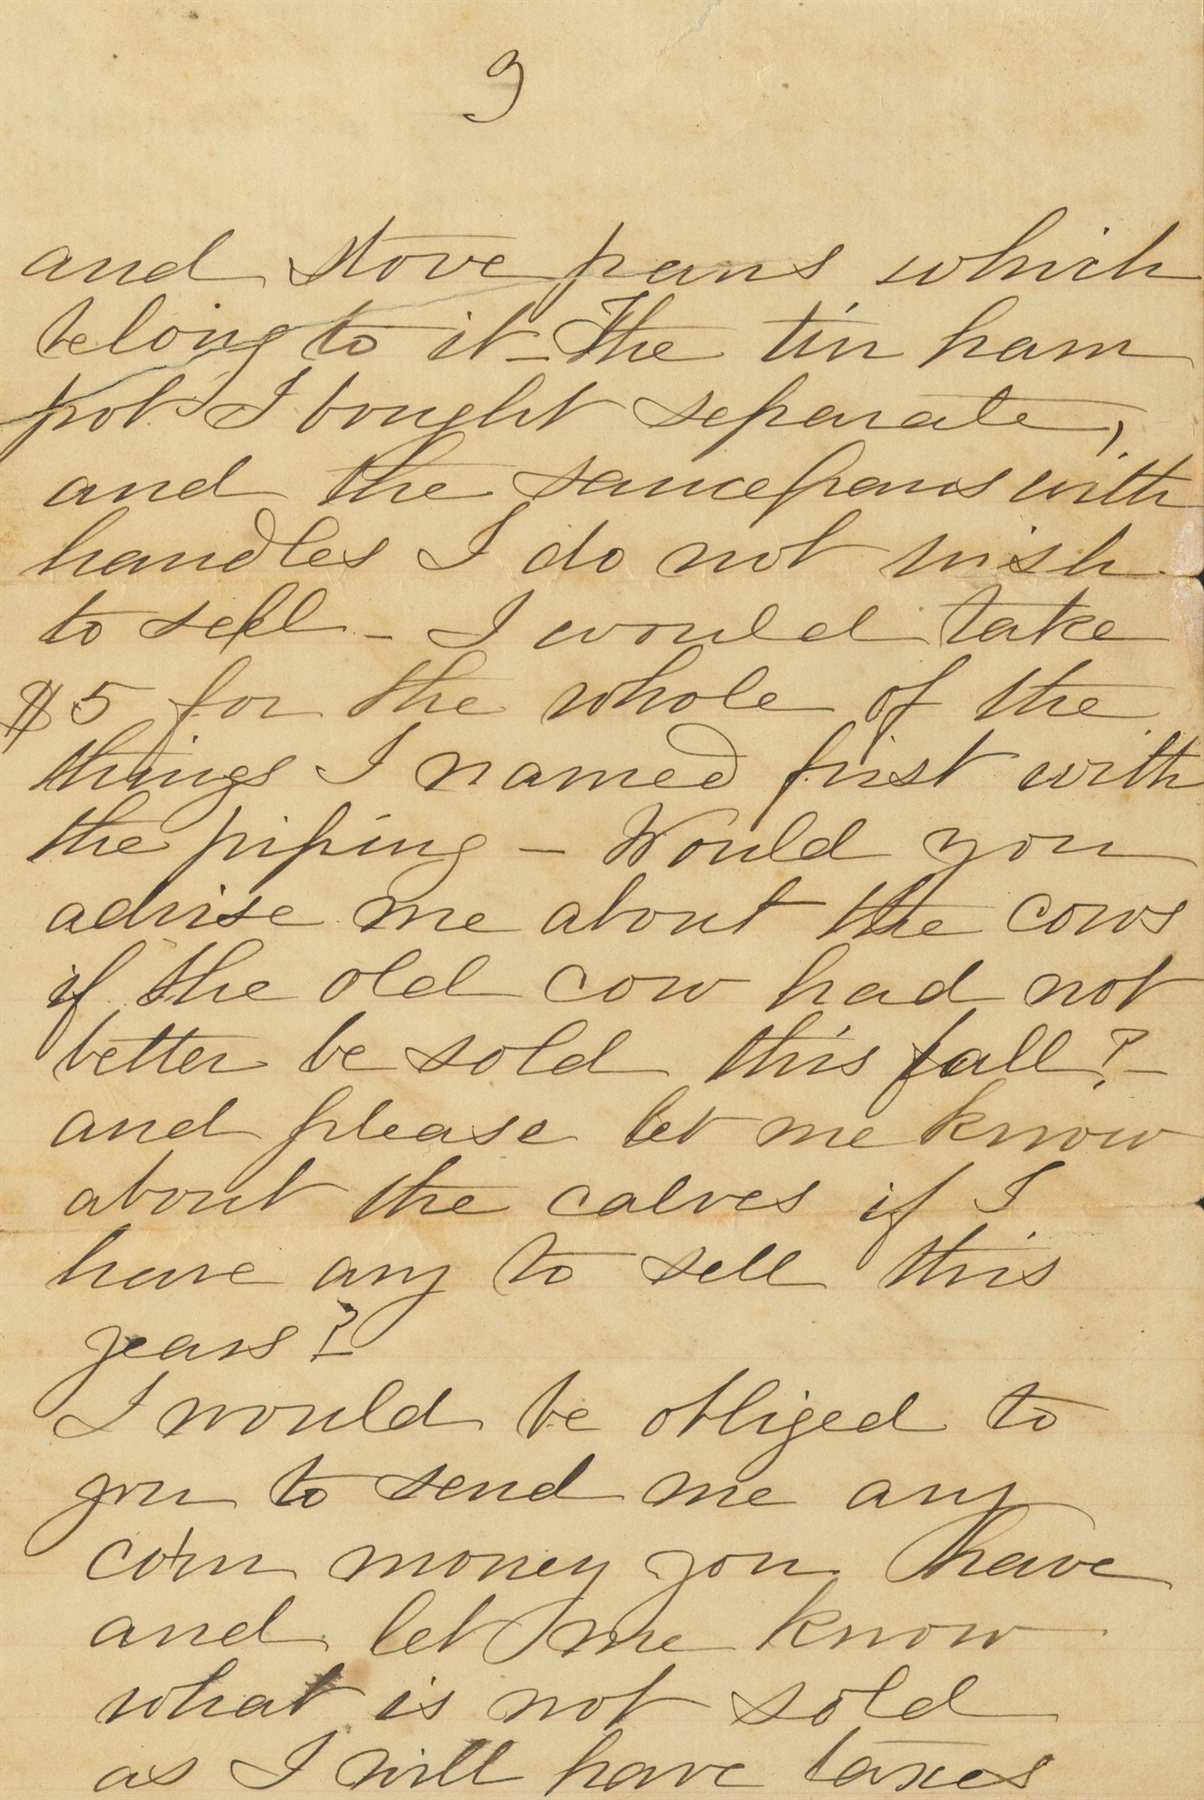 3
and stove pans which
belong to it - The tin ham
pot I bought separate,
and the saucepans with
handles I do not wish
to sell - I would take
$5 for the whole of the
things I named first with
the piping - Would you
advise me about the cows
if the old cow had not
better be sold this fall? -
and please let me know
about the calves if I
have any to sell this
years?
I would be obliged to
you to send me any
corn money you have
and let me know
what is not sold
as I will have taxes